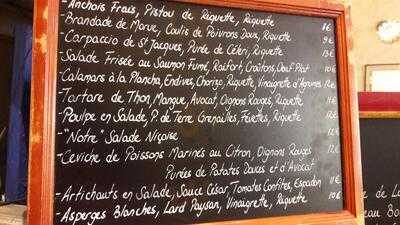 -Anchois Frais, Pistou de Riquette, Riquette 8€
-Brandade de Morue, Coulis de Poivrons Doux, Riquette 9€
-Carpaccio de St Jacques, Purée de Céleri, Riquette 13€
-Salade Frisée au Saumon Fumé, Raifort, Croûtons, Oeuf Plat 10€
-Calamars à la Plancha, Endives, Chorizo, Riquette, Vinaigrette d'Agrumes 12€
-Tartare de Thon, Mangue, Avocat, Oignons Rouges, Riquette 11€
-Poulpe en Salade, P. de Terre Grenailles, Févettes, Riquette 12€
-"Notre" Salade Niçoise 12€
-Ceviche de Poissons Marinés au Citron, Oignons Rouges 12€
Purées de Patates Douces et d'Avocat
-Artichauts en Salade, Sauce César, Tomates Confites, Espadon 11€
-Asperges Blanches, Lard Paysan, Vinaigrette, Riquette 10€